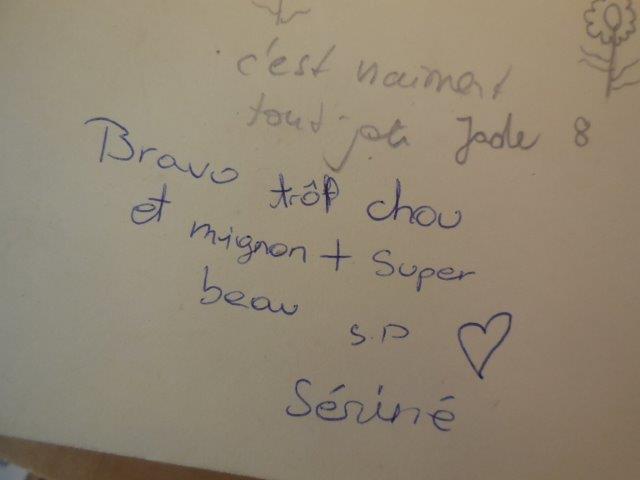 c'est vraiment
tout joli Jade 8
Bravo trôp chou
et mignon + super
beau
S.P
Sériné